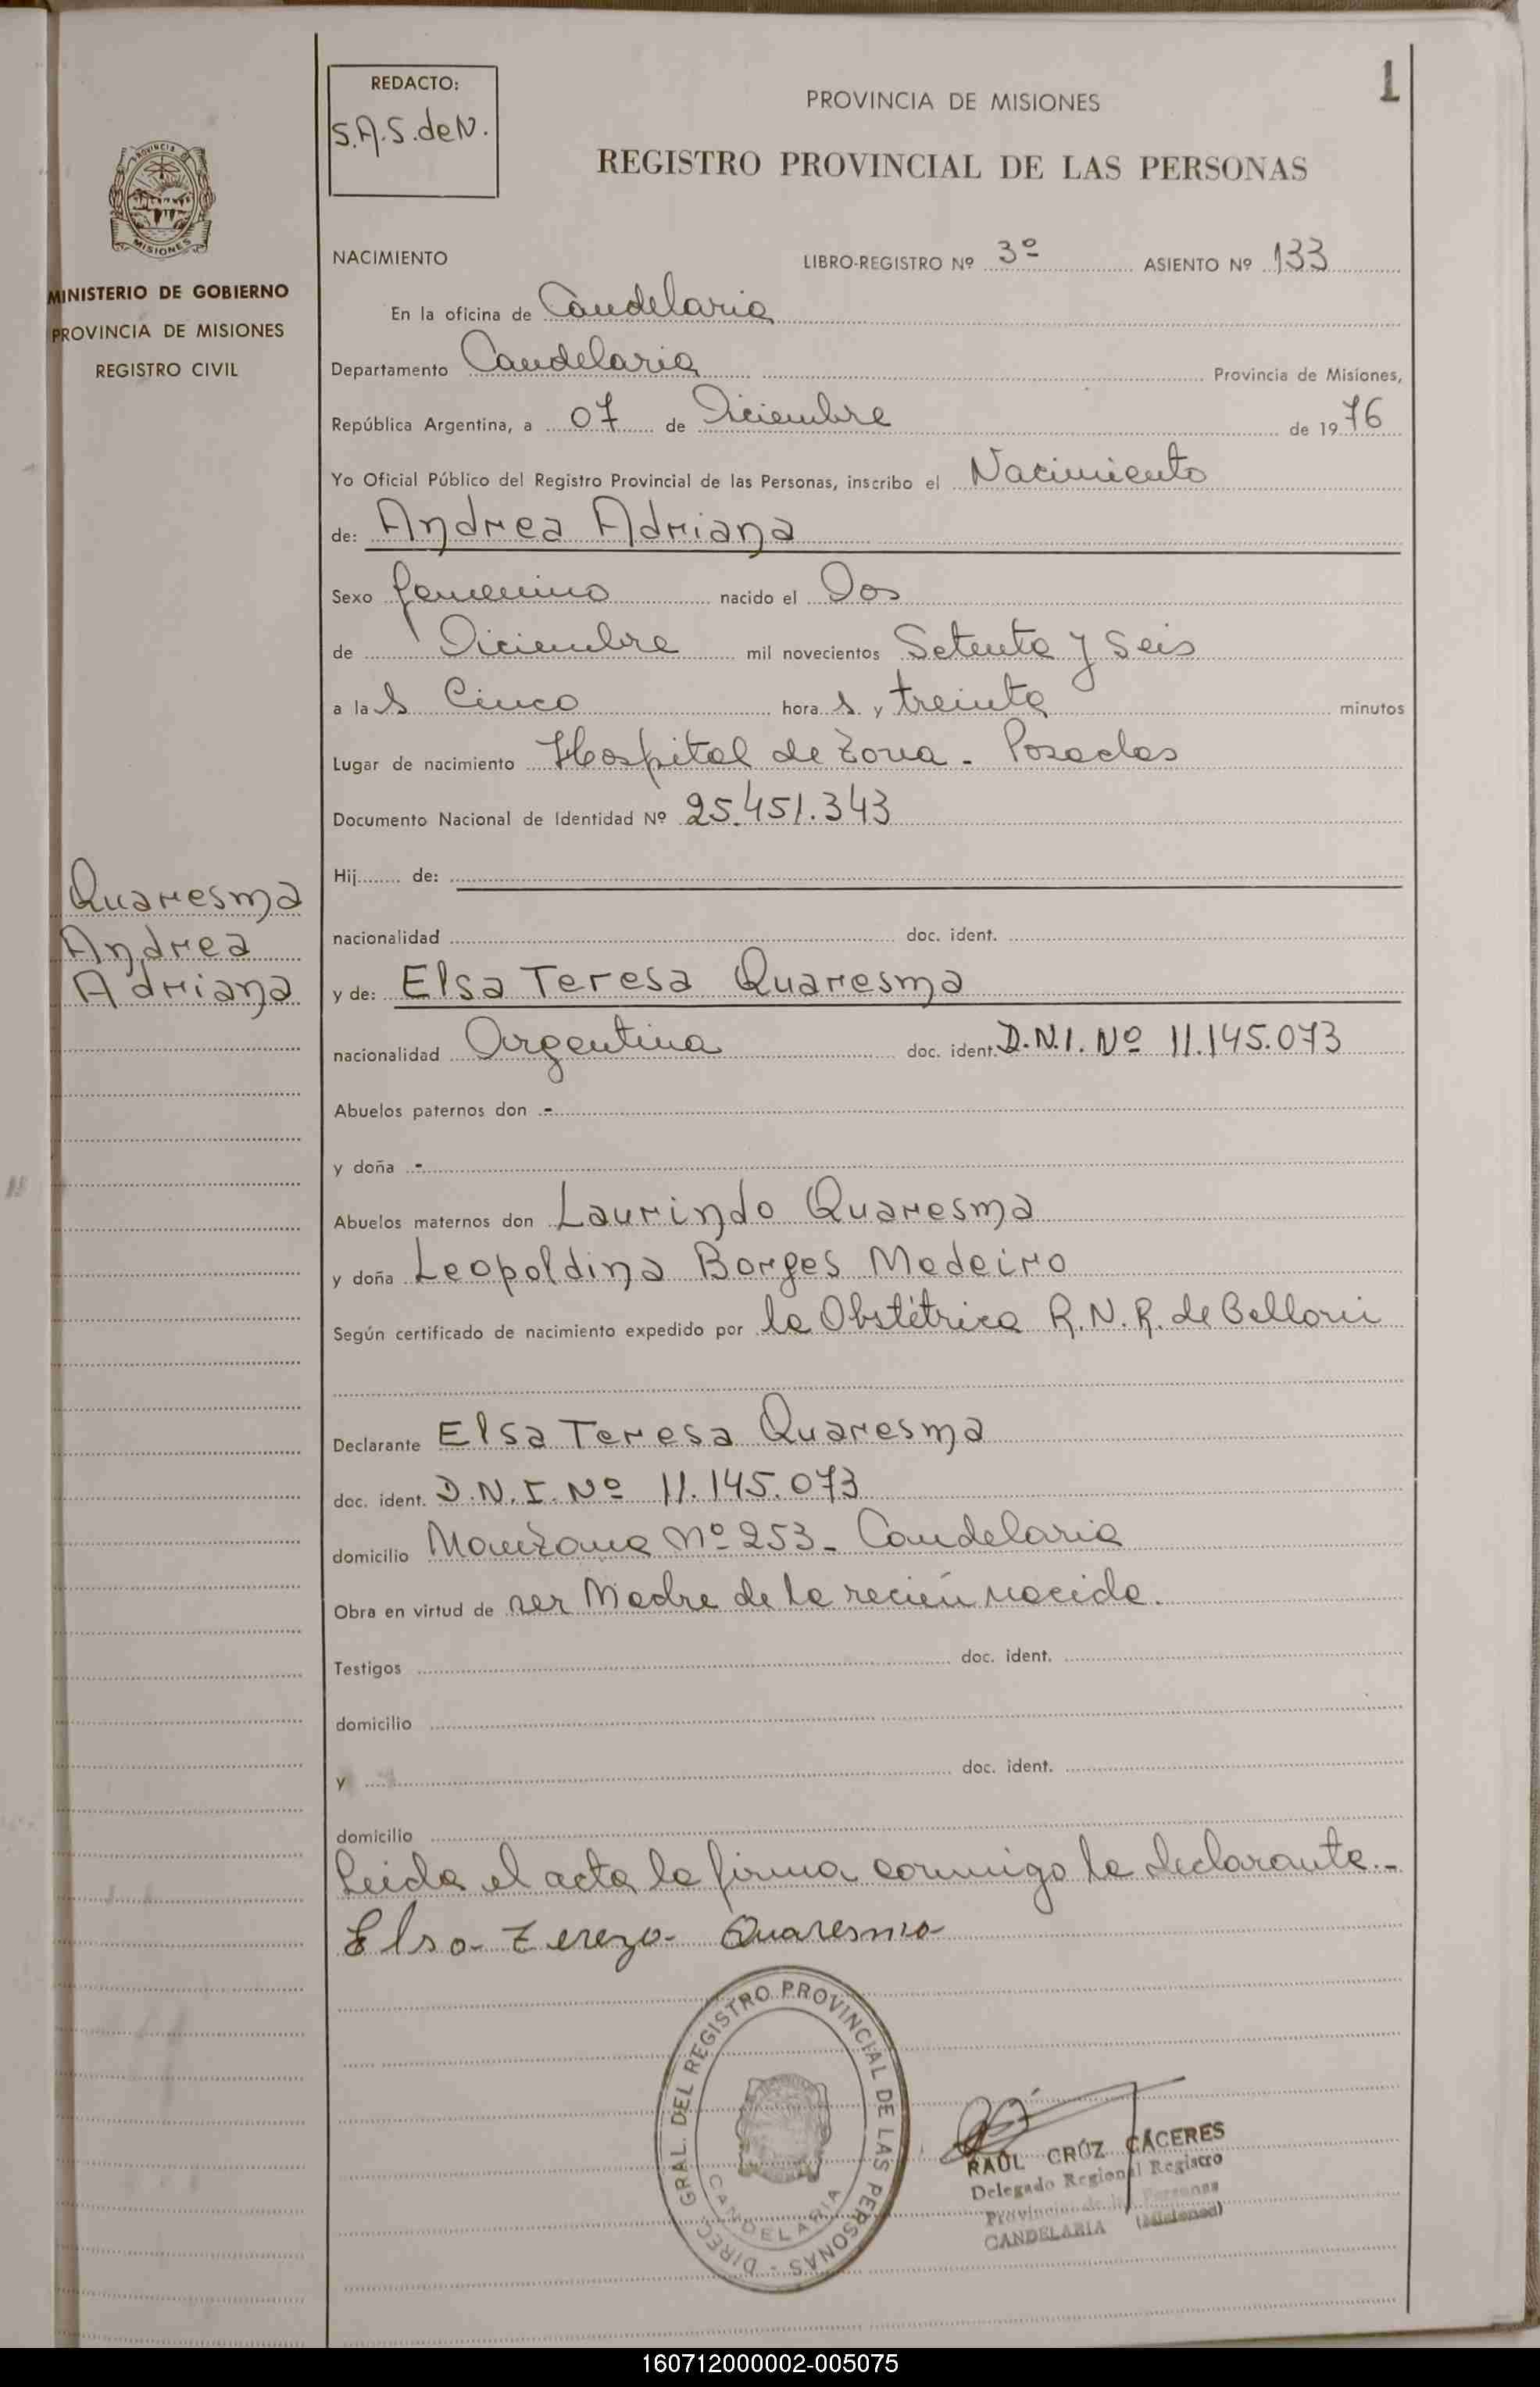 1
REDACTO:
S.A.S. de N.
PROVINCIA DE MISIONES
REGISTRO PROVINCIAL DE LAS PERSONAS
PROVINCIA DE
MISIONES
MINISTERIO DE GOBIERNO
PROVINCIA DE MISIONES
REGISTRO CIVIL
NACIMIENTO LIBRO-REGISTRO Nº 3º ASIENTO Nº 133
En la oficina de Candelaria
Departamento Candelaria Provincia de Misiones,
República Argentina, a 07 de Diciembre de 1976
Yo Oficial Público del Registro Provincial de las Personas, inscribo el Nacimiento
de: Andrea Adriana
Sexo femenino nacido el Dos
de Diciembre mil novecientos Setenta y Seis
a las Cinco horas y treinta minutos
Lugar de nacimiento Hospital de Zona - Posadas
Documento Nacional de Identidad Nº 25.451.343
Hij de:
Quaresma
Andrea
Adriana
nacionalidad doc. ident.
y de: Elsa Teresa Quaresma
nacionalidad Argentina doc. ident. D.N.I. Nº 11.145.073
Abuelos paternos don -
y doña -
Abuelos maternos don Laurindo Quaresma
y doña Leopoldina Borges Medeiro
Según certificado de nacimiento expedido por la Obstétrica R.N.R. de Bellorii
Declarante Elsa Teresa Quaresma
doc. ident. D.N.I. Nº 11.145.073
domicilio Manzana Nº 253 - Candelaria
Obra en virtud de ser Madre de la recién nacida.
Testigos doc. ident.
domicilio
y doc. ident.
domicilio
Leida el acta la firma conmigo la declarante.-
Elsa Tereza Quaresma
DIREC. GRAL. DEL REGISTRO PROVINCIAL DE LAS PERSONAS -
CANDELARIA
RAÚL CRÚZ CÁCERES
Delegado Regional Registro
Provincial de las Personas
CANDELARIA (Misiones)
160712000002-005075